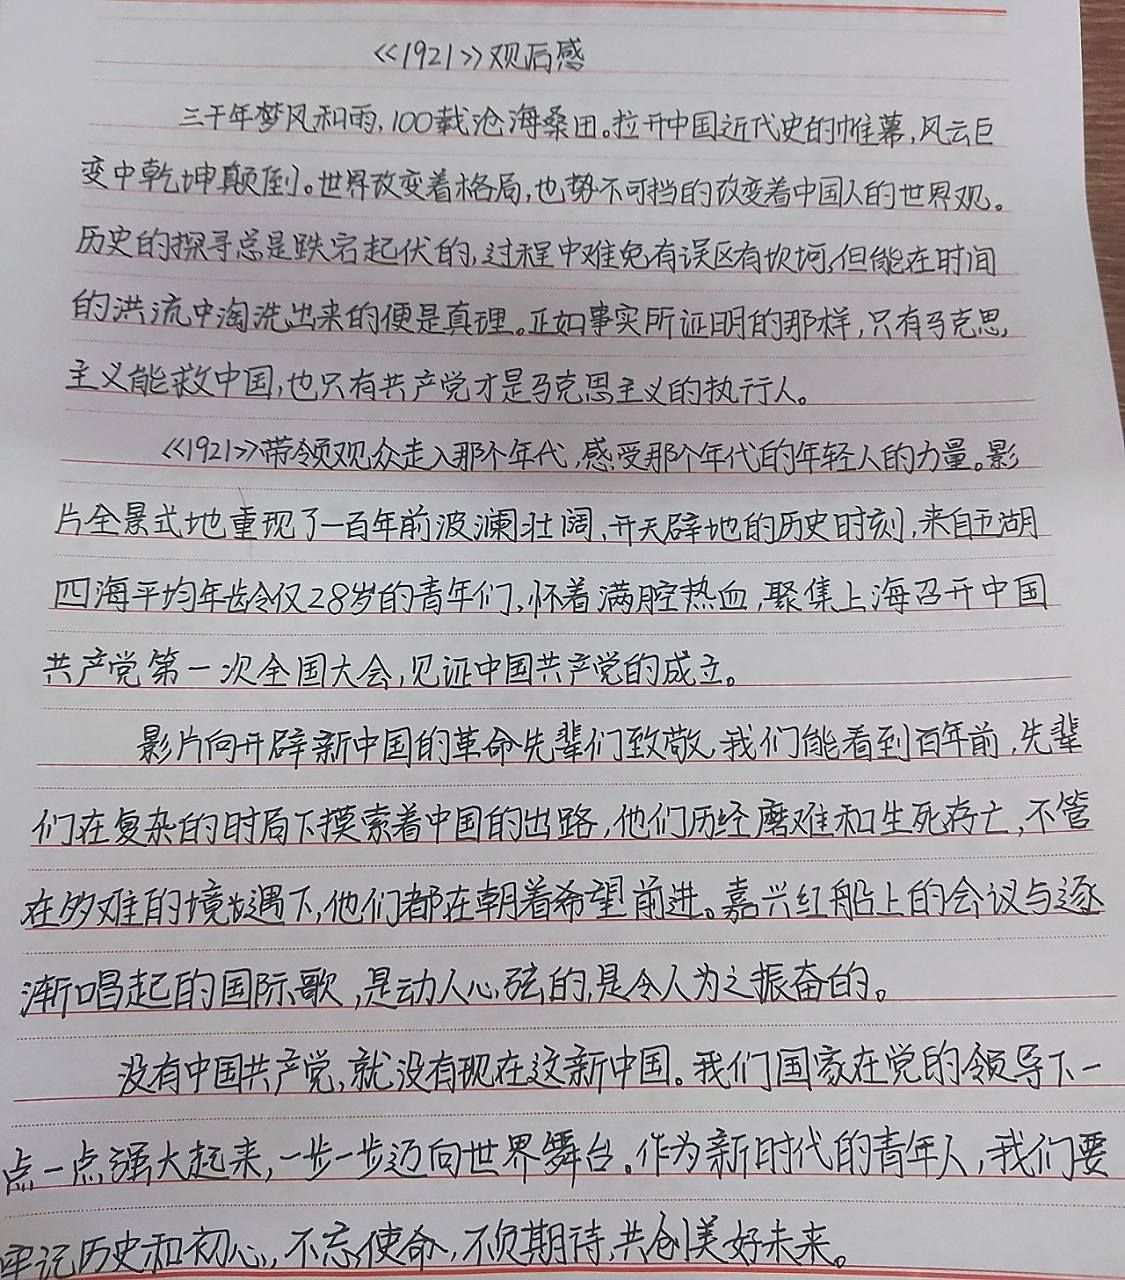 《1921》观后感
三千年梦风和雨,100载沧海桑田。拉开中国近代史的帷幕,风云巨
变中乾坤颠倒。世界改变着格局,也势不可挡的改变着中国人的世界观。
历史的探寻总是跌宕起伏的,过程中难免有误区有坎坷,但能在时间
的洪流中淘洗出来的便是真理。正如事实所证明的那样,只有马克思
主义能救中国,也只有共产党才是马克思主义的执行人。
《1921》带领观众走入那个年代,感受那个年代的年轻人的力量。影
片全景式地重现了一百年前波澜壮阔、开天辟地的历史时刻,来自五湖
四海平均年龄仅28岁的青年们,怀着满腔热血,聚集上海召开中国
共产党第一次全国大会,见证中国共产党的成立。
影片向开辟新中国的革命先辈们致敬,我们能看到百年前,先辈
们在复杂的时局下摸索着中国的出路,他们历经磨难和生死存亡,不管
在多难的境遇下,他们都在朝着希望前进。嘉兴红船上的会议与逐
渐唱起的国际歌,是动人心弦的,是令人为之振奋的。
没有中国共产党,就没有现在这新中国。我们国家在党的领导下一
点一点强大起来,一步一步迈向世界舞台。作为新时代的青年人,我们要
牢记历史和初心,不忘使命,不负期待,共创美好未来。